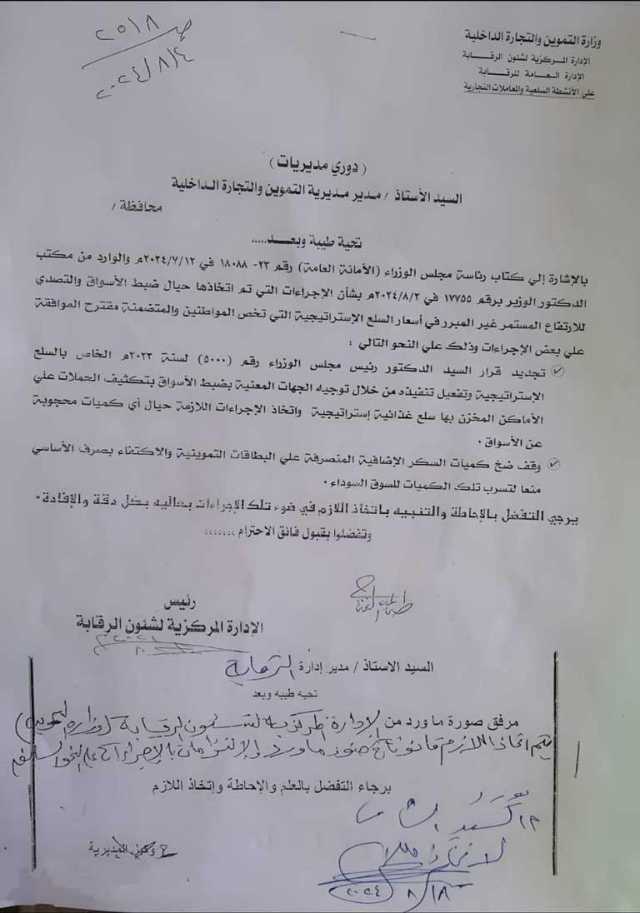 وزارة التموين والتجارة الداخلية
الإدارة المركزية لشئون الرقابة
الإدارة العامة للرقابة
علي الأنشطة السلعية والعاملات التجارية
٢٠١٨
٢٠٢٤/٨/٤
( دوري مديريات )
السيد الأستاذ / مدير مديرية التموين والتجارة الداخلية
محافظة /
تحية طيبة وبعد.....
بالإشارة إلي كتاب رئاسة مجلس الوزراء (الأمانة العامة) رقم ٢٣- ١٨٠٨٨ في ٢٠٢٤/٧/١٢م والوارد من مكتب
الدكتور الوزير برقم ١٧٧٥٥ في ٢٠٢٤/٨/٢م بشأن الإجراءات التي تم اتخاذها حيال ضبط الأسواق والتصدي
للارتفاع المستمر غير المبرر في أسعار السلع الإستراتيجية التي تخص المواطنين والمتضمنة مقترح الموافقة
علي بعض الإجراءات وذلك علي النحو التالي :
تجديد قرار السيد الدكتور رئيس مجلس الوزراء رقم (٥٠٠٠) لسنة ٢٠٢٣م الخاص بالسلع
الإستراتيجية وتفعيل تنفيذه من خلال توجيه الجهات المعنية بضبط الأسواق بتكثيف الحملات علي
الأماكن المخزن بها سلع غذائية إستراتيجية واتخاذ الإجراءات اللازمة حيال أي كميات محجوبة
عن الأسواق .
وقف ضخ كميات السكر الإضافية المنصرفة علي البطاقات التموينية والاكتفاء بصرف الأساسي
منعا لتسرب تلك الكميات للسوق السوداء .
يرجي التفضل بالإحاطة والتنبيه باتخاذ اللازم في ضوء تلك الإجراءات بعاليه بكل دقة والإفادة .
وتفضلوا بقبول فائق الاحترام .......
رئيس
الإدارة المركزية لشئون الرقابة
السيد الاستاذ / مدير إدارة الرقابة
تحيه طيبه وبعد
مرفق صورة ما ورد من الإدارة المركزية لشئون الرقابة (وزارة التموين)
يتم اتخاذ اللازم قانونا في ضوء ما ورد والإلتزام بالإجراءات على النحو
برجاء التفضل بالعلم والإحاطة وإتخاذ اللازم
وكيل المديرية
٢٠٢٤/٨/